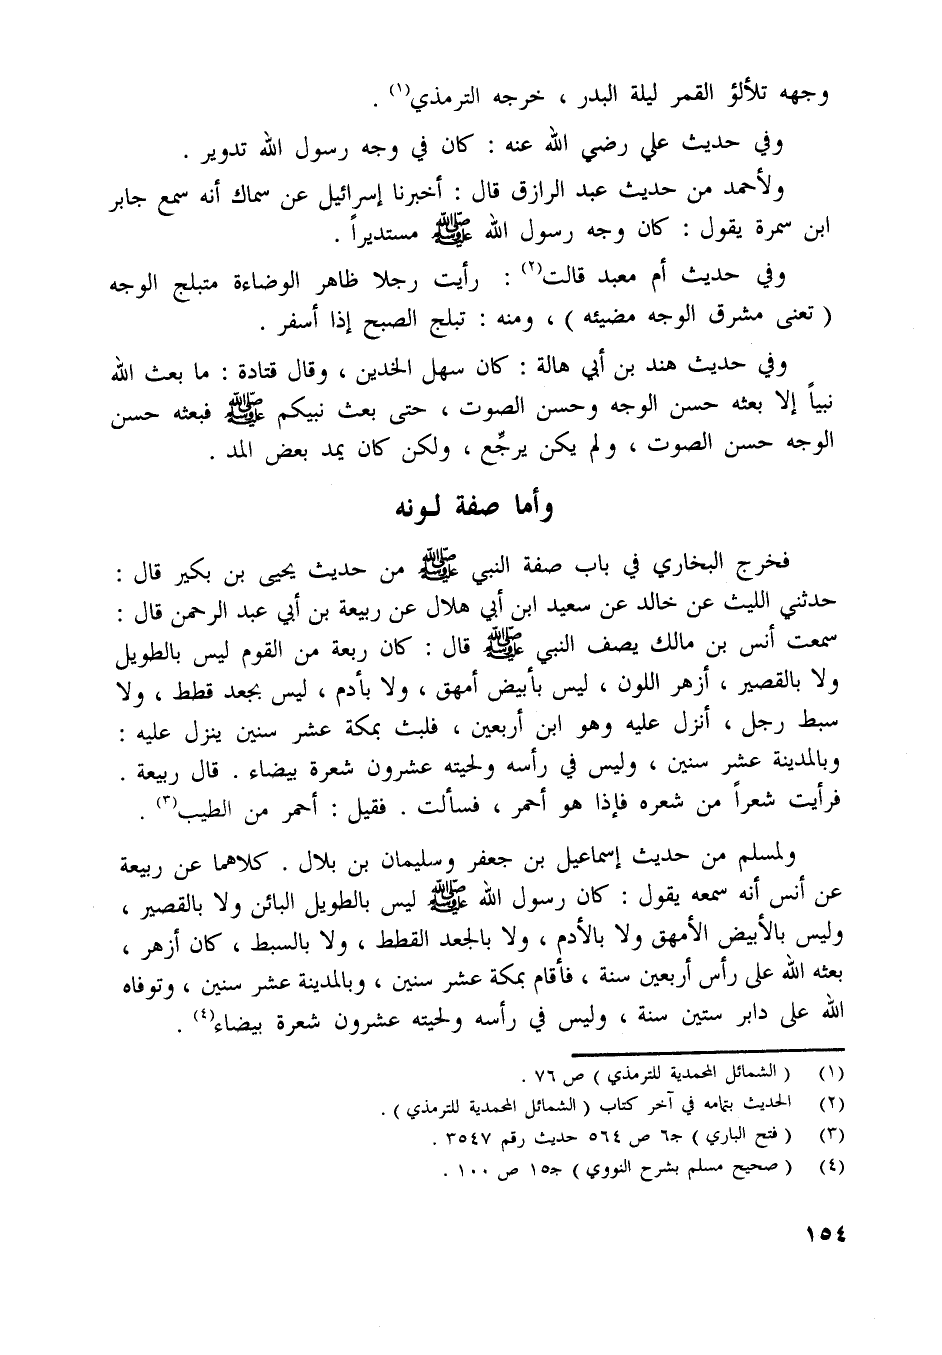 وجهه تلألؤ القمر ليلة البدر ، خرجه الترمذي(١) .
وفي حديث علي رضي الله عنه : كان في وجه رسول الله تدوير .
ولأحمد من حديث عبد الرازق قال : أخبرنا إسرائيل عن سماك أنه سمع جابر
ابن سمرة يقول : كان وجه رسول الله ﷺ مستديراً .
وفي حديث أم معبد قالت(٢) : رأيت رجلا ظاهر الوضاءة متبلج الوجه
( تعنى مشرق الوجه مضيئه ) ، ومنه : تبلج الصبح إذا أسفر .
وفي حديث هند بن أبي هالة : كان سهل الخدين ، وقال قتادة : ما بعث الله
نبياً إلا بعثه حسن الوجه وحسن الصوت ، حتى بعث نبيكم ﷺ فبعثه حسن
الوجه حسن الصوت ، ولم يكن يرجِّع ، ولكن كان يمد بعض المد .
وأما صفة لـونه
فخرج البخاري في باب صفة النبي ﷺ من حديث يحيى بن بكير قال :
حدثني الليث عن خالد عن سعيد ابن أبي هلال عن ربيعة بن أبي عبد الرحمن قال :
سمعت أنس بن مالك يصف النبي ﷺ قال : كان ربعة من القوم ليس بالطويل
ولا بالقصير ، أزهر اللون ، ليس بأبيض أمهق ، ولا بأدم ، ليس بجعد قطط ، ولا
سبط رجل ، أنزل عليه وهو ابن أربعين ، فلبث بمكة عشر سنين ينزل عليه :
وبالمدينة عشر سنين ، وليس في رأسه ولحيته عشرون شعرة بيضاء . قال ربيعة .
فرأيت شعراً من شعره فإذا هو أحمر ، فسألت . فقيل : أحمر من الطيب(٣) .
ولمسلم من حديث إسماعيل بن جعفر وسليمان بن بلال . كلاهما عن ربيعة
عن أنس أنه سمعه يقول : كان رسول الله ﷺ ليس بالطويل البائن ولا بالقصير ،
وليس بالأبيض الأمهق ولا بالأدم ، ولا بالجعد القطط ، ولا بالسبط ، كان أزهر ،
بعثه الله على رأس أربعين سنة ، فأقام بمكة عشر سنين ، وبالمدينة عشر سنين ، وتوفاه
الله على دابر ستين سنة ، وليس في رأسه ولحيته عشرون شعرة بيضاء(٤) .
(١) ( الشمائل المحمدية للترمذي ) ص ٧٦ .
(٢) الحديث بتمامه في آخر كتاب ( الشمائل المحمدية للترمذي ) .
(٣) ( فتح الباري ) جـ٦ ص ٥٦٤ حديث رقم ٣٥٤٧ .
(٤) ( صحيح مسلم بشرح النووي ) جـ١٥ ص ١٠٠ .
١٥٤